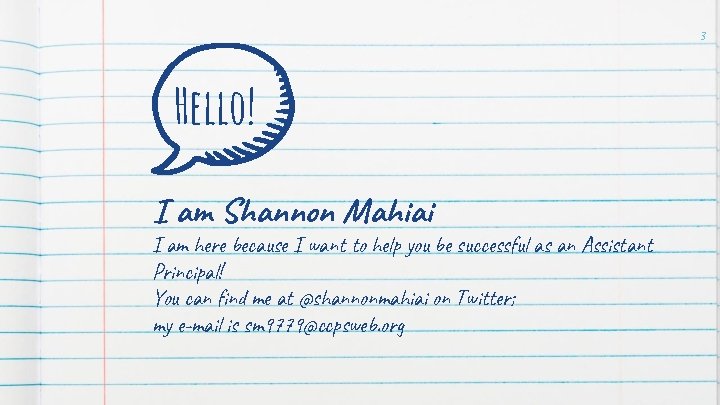 3
Hello!
I am Shannon Mahiai
I am here because I want to help you be successful as an Assistant
Principal!
You can find me at @shannonmahiai on Twitter;
my e-mail is sm9779@ccpsweb.org